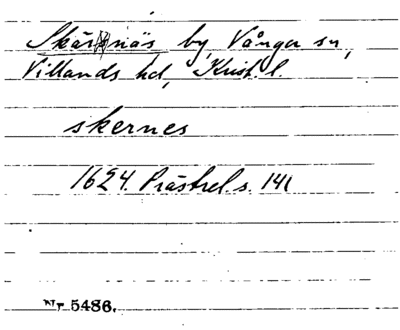 Skärsnäs by, Vånga sn,
Villands hd, Krist. l.
skernes
1624. Prästrel. s. 141
Nr 5486.